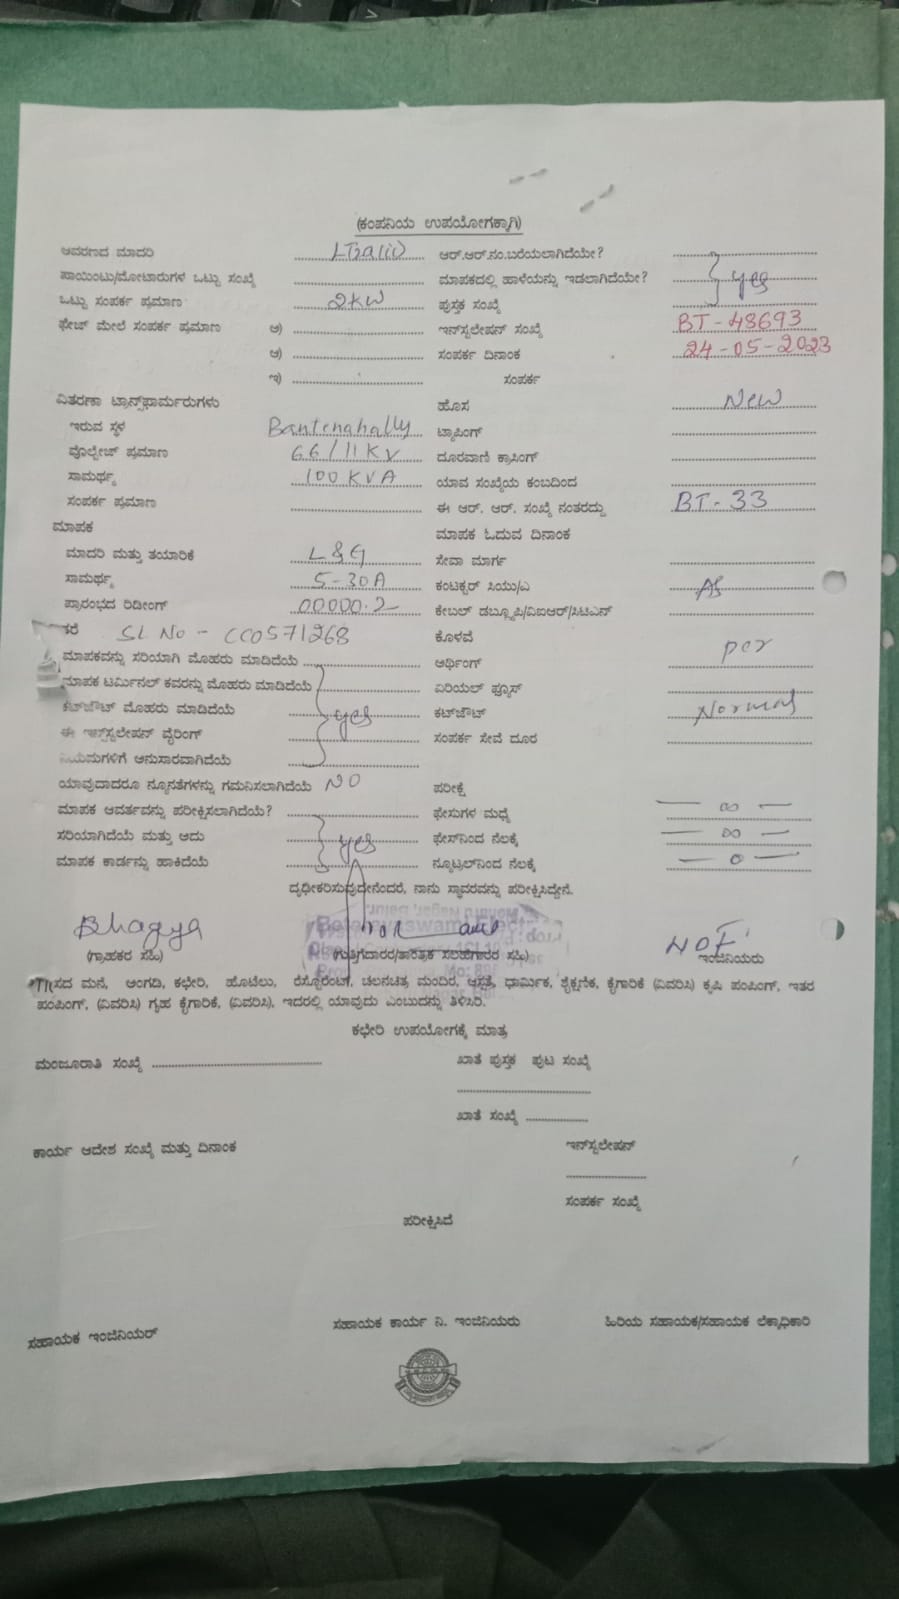 (ಕಂಪನಿಯ ಉಪಯೋಗಕ್ಕಾಗಿ)
ಆವರಣದ ಮಾದರಿ ಆರ್.ಆರ್.ನಂ.ಬರೆಯಲಾಗಿದೆಯೇ?
ಪಾಯಿಂಟು/ಮೋಟಾರುಗಳ ಒಟ್ಟು ಸಂಖ್ಯೆ ಮಾಪಕದಲ್ಲಿ ಹಾಳೆಯನ್ನು ಇಡಲಾಗಿದೆಯೇ? yes
ಒಟ್ಟು ಸಂಪರ್ಕ ಪ್ರಮಾಣ 2KW ಪುಸ್ತಕ ಸಂಖ್ಯೆ
ಫೇಜ್ ಮೇಲೆ ಸಂಪರ್ಕ ಪ್ರಮಾಣ ಅ) ಇನ್‌ಸ್ಟಲೇಷನ್ ಸಂಖ್ಯೆ BT-48693
ಆ) ಸಂಪರ್ಕ ದಿನಾಂಕ 24-05-2023
ಇ) ಸಂಪರ್ಕ
ವಿತರಣಾ ಟ್ರಾನ್ಸ್‌ಫಾರ್ಮರುಗಳು ಹೊಸ New
ಇರುವ ಸ್ಥಳ Bantenahally ಟ್ಯಾಪಿಂಗ್
ವೊಲ್ಟೇಜ್ ಪ್ರಮಾಣ 66/11KV ದೂರವಾಣಿ ಕ್ರಾಸಿಂಗ್
ಸಾಮರ್ಥ್ಯ 100KVA ಯಾವ ಸಂಖ್ಯೆಯ ಕಂಬದಿಂದ
ಸಂಪರ್ಕ ಪ್ರಮಾಣ ಈ ಆರ್. ಆರ್. ಸಂಖ್ಯೆ ನಂತರದ್ದು BT-33
ಮಾಪಕ ಮಾಪಕ ಓದುವ ದಿನಾಂಕ
ಮಾದರಿ ಮತ್ತು ತಯಾರಿಕೆ L&G ಸೇವಾ ಮಾರ್ಗ
ಸಾಮರ್ಥ್ಯ 5-30A ಕಂಟಕ್ಟರ್ ಸಿಯು/ಎ As
ಪ್ರಾರಂಭದ ರಿಡೀಂಗ್ 00000.2 ಕೇಬಲ್ ಡಬ್ಲ್ಯೂಪಿ/ವಿಐಆರ್/ಸಿಟಿಎನ್
Sl No - CC0571268 ಕೊಳವೆ
ಮಾಪಕವನ್ನು ಸರಿಯಾಗಿ ಮೊಹರು ಮಾಡಿದೆಯೆ ಅರ್ಥಿಂಗ್ per
ಮಾಪಕ ಟರ್ಮಿನಲ್ ಕವರನ್ನು ಮೊಹರು ಮಾಡಿದೆಯೆ ಏರಿಯಲ್ ಫ್ಯೂಸ್
ಕಟ್‌ಔಟ್ ಮೊಹರು ಮಾಡಿದೆಯೆ yes ಕಟ್‌ಔಟ್ Normal
ಈ ಇನ್ಸ್‌ಸ್ಟಲೇಷನ್ ವೈರಿಂಗ್ ಸಂಪರ್ಕ ಸೇವೆ ದೂರ
ನಿಯಮಗಳಿಗೆ ಅನುಸಾರವಾಗಿದೆಯೆ
ಯಾವುದಾದರೂ ನ್ಯೂನತೆಗಳನ್ನು ಗಮನಿಸಲಾಗಿದೆಯೆ NO ಪರೀಕ್ಷೆ
ಮಾಪಕ ಆವರ್ತವನ್ನು ಪರೀಕ್ಷಿಸಲಾಗಿದೆಯೆ? ಫೇಸುಗಳ ಮಧ್ಯೆ — ∞ —
ಸರಿಯಾಗಿದೆಯೆ ಮತ್ತು ಅದು yes ಫೇಸ್‌ನಿಂದ ನೆಲಕ್ಕೆ — ∞ —
ಮಾಪಕ ಕಾರ್ಡನ್ನು ಹಾಕಿದೆಯೆ ನ್ಯೂಟ್ರಲ್‌ನಿಂದ ನೆಲಕ್ಕೆ — 0 —
ದೃಢೀಕರಿಸುವುದೇನೆಂದರೆ, ನಾನು ಸ್ಥಾವರವನ್ನು ಪರೀಕ್ಷಿಸಿದ್ದೇನೆ.
Bhagya
(ಗ್ರಾಹಕರ ಸಹಿ) (ಗುತ್ತಿಗೆದಾರರ/ತಾಂತ್ರಿಕ ಸಲಹೆಗಾರರ ಸಹಿ) ಇಂಜಿನಿಯರು
ಸದ ಮನೆ, ಅಂಗಡಿ, ಕಛೇರಿ, ಹೊಟೆಲು, ರೆಸ್ಟೋರೆಂಟ್, ಚಲನಚಿತ್ರ ಮಂದಿರ, ಆಸ್ಪತ್ರೆ, ಧಾರ್ಮಿಕ, ಶೈಕ್ಷಣಿಕ, ಕೈಗಾರಿಕೆ (ವಿವರಿಸಿ) ಕೃಷಿ ಪಂಪಿಂಗ್, ಇತರ
ಪಂಪಿಂಗ್, (ವಿವರಿಸಿ) ಗೃಹ ಕೈಗಾರಿಕೆ, (ವಿವರಿಸಿ), ಇದರಲ್ಲಿ ಯಾವುದು ಎಂಬುದನ್ನು ತಿಳಿಸಿರಿ.
ಕಛೇರಿ ಉಪಯೋಗಕ್ಕೆ ಮಾತ್ರ
ಮಂಜೂರಾತಿ ಸಂಖ್ಯೆ ಖಾತೆ ಪುಸ್ತಕ ಪುಟ ಸಂಖ್ಯೆ
ಖಾತೆ ಸಂಖ್ಯೆ
ಕಾರ್ಯ ಆದೇಶ ಸಂಖ್ಯೆ ಮತ್ತು ದಿನಾಂಕ ಇನ್‌ಸ್ಟಲೇಷನ್
ಸಂಪರ್ಕ ಸಂಖ್ಯೆ
ಪರೀಕ್ಷಿಸಿದೆ
ಸಹಾಯಕ ಇಂಜಿನಿಯರ್ ಸಹಾಯಕ ಕಾರ್ಯ ನಿ. ಇಂಜಿನಿಯರು ಹಿರಿಯ ಸಹಾಯಕ/ಸಹಾಯಕ ಲೆಕ್ಕಾಧಿಕಾರಿ